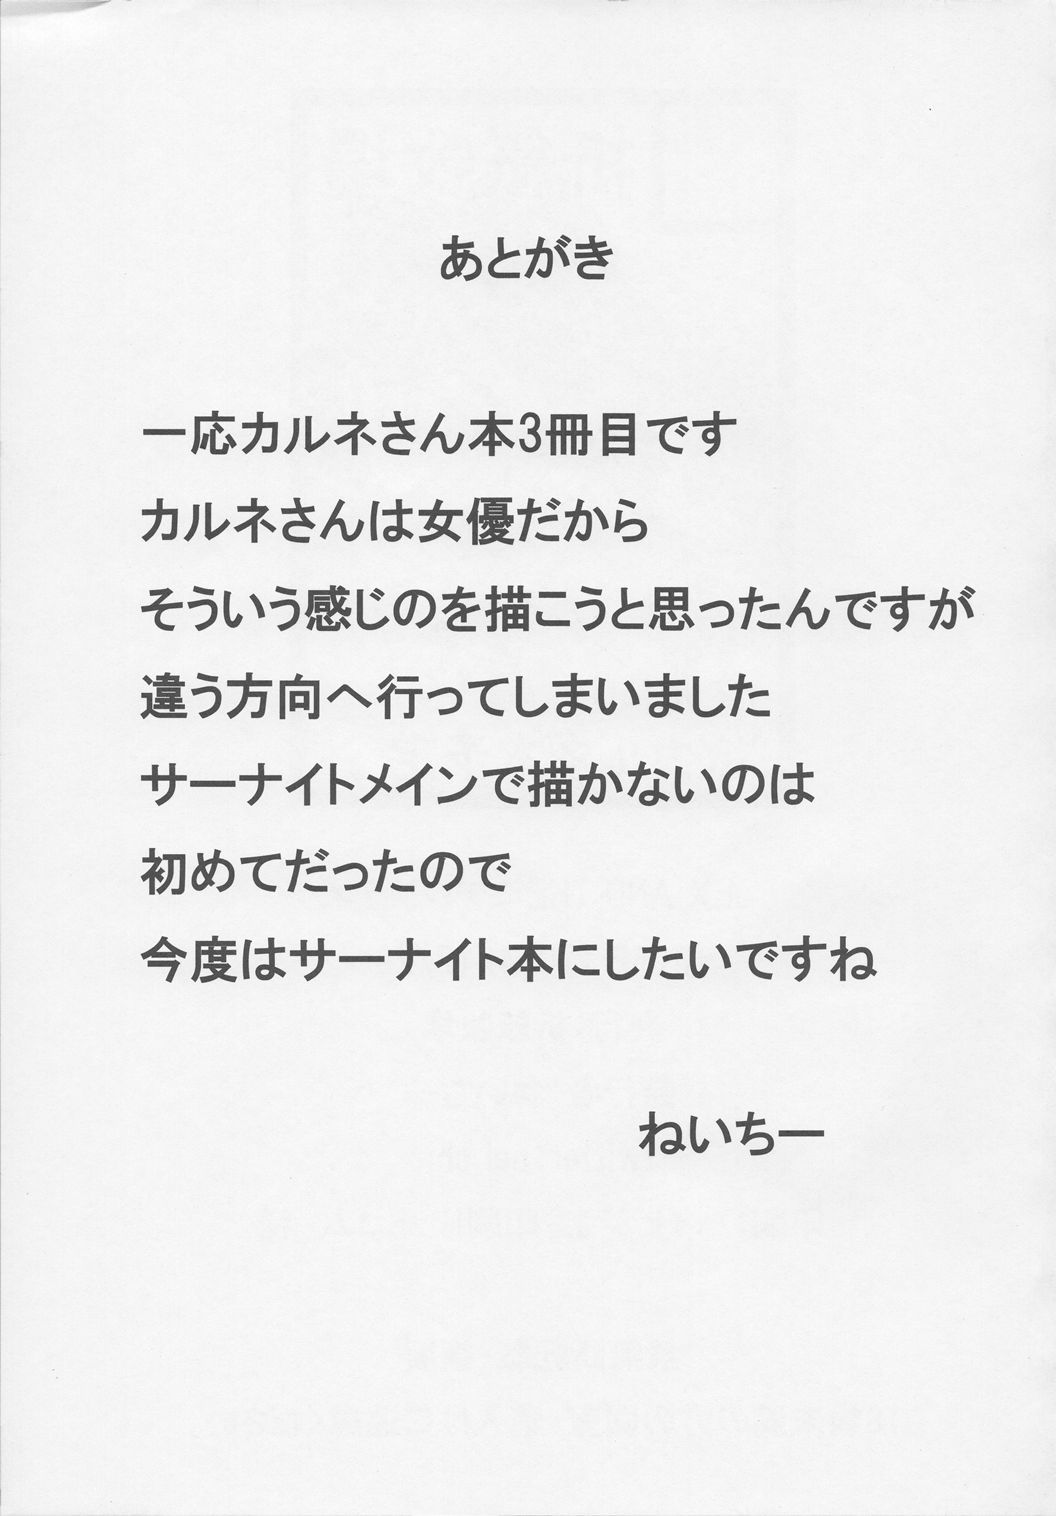 あとがき
一応カルネさん本3冊目です
カルネさんは女優だから
そういう感じのを描こうと思ったんですが
違う方向へ行ってしまいました
サーナイトメインで描かないのは
初めてだったので
今度はサーナイト本にしたいですね
ねいちー